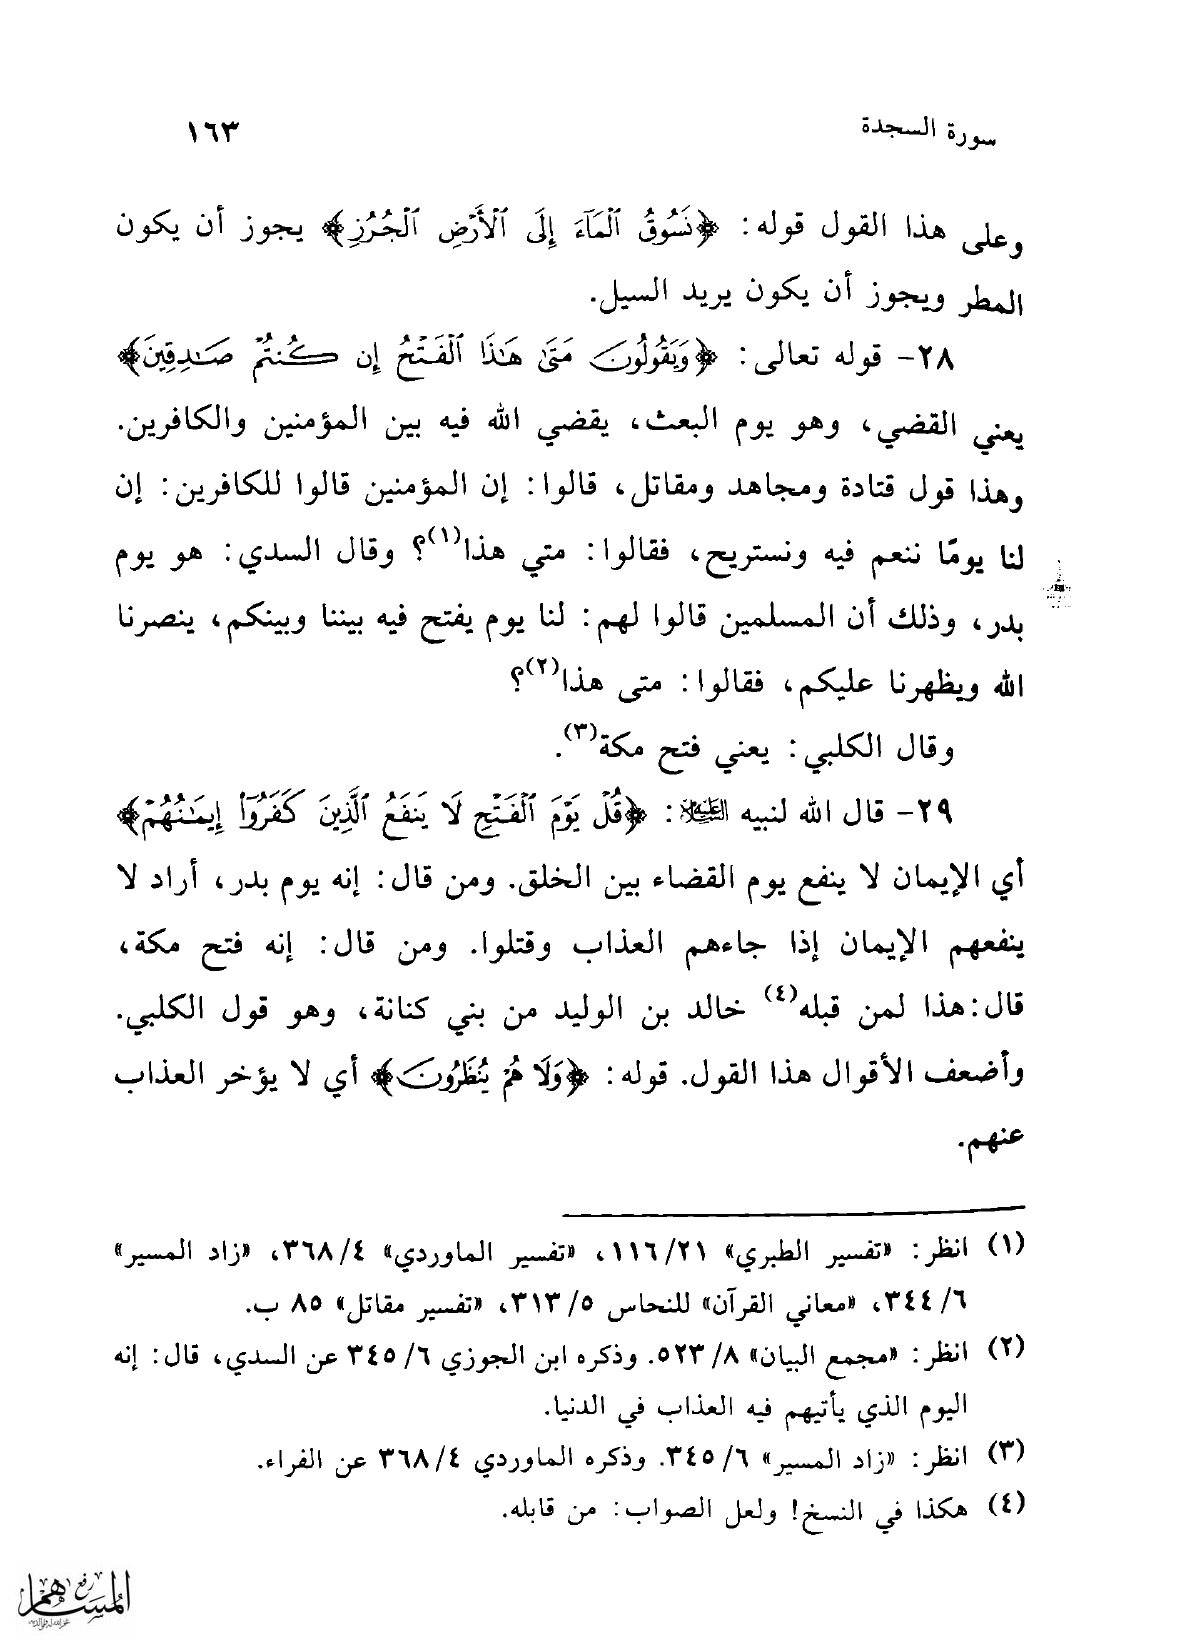 سورة السجدة ١٦٣
وعلى هذا القول قوله: ﴿نَسُوقُ ٱلْمَآءَ إِلَى ٱلْأَرْضِ ٱلْجُرُزِ﴾ يجوز أن يكون
المطر ويجوز أن يكون يريد السيل.
٢٨- قوله تعالى: ﴿وَيَقُولُونَ مَتَىٰ هَٰذَا ٱلْفَتْحُ إِن كُنتُمْ صَٰدِقِينَ﴾
يعني القضي، وهو يوم البعث، يقضي الله فيه بين المؤمنين والكافرين.
وهذا قول قتادة ومجاهد ومقاتل، قالوا: إن المؤمنين قالوا للكافرين: إن
لنا يومًا ننعم فيه ونستريح، فقالوا: متي هذا(١)؟ وقال السدي: هو يوم
بدر، وذلك أن المسلمين قالوا لهم: لنا يوم يفتح فيه بيننا وبينكم، ينصرنا
الله ويظهرنا عليكم، فقالوا: متى هذا(٢)؟
وقال الكلبي: يعني فتح مكة(٣).
٢٩- قال الله لنبيه عليه السلام: ﴿قُلْ يَوْمَ ٱلْفَتْحِ لَا يَنفَعُ ٱلَّذِينَ كَفَرُوٓا۟ إِيمَٰنُهُمْ﴾
أي الإيمان لا ينفع يوم القضاء بين الخلق. ومن قال: إنه يوم بدر، أراد لا
ينفعهم الإيمان إذا جاءهم العذاب وقتلوا. ومن قال: إنه فتح مكة،
قال:هذا لمن قبله(٤) خالد بن الوليد من بني كنانة، وهو قول الكلبي.
وأضعف الأقوال هذا القول. قوله: ﴿وَلَا هُمْ يُنظَرُونَ﴾ أي لا يؤخر العذاب
عنهم.
(١) انظر: «تفسير الطبري» ٢١/ ١١٦، «تفسير الماوردي» ٤/ ٣٦٨، «زاد المسير»
٦/ ٣٤٤، «معاني القرآن» للنحاس ٥/ ٣١٣، «تفسير مقاتل» ٨٥ ب.
(٢) انظر: «مجمع البيان» ٨/ ٥٢٣. وذكره ابن الجوزي ٦/ ٣٤٥ عن السدي، قال: إنه
اليوم الذي يأتيهم فيه العذاب في الدنيا.
(٣) انظر: «زاد المسير» ٦/ ٣٤٥. وذكره الماوردي ٤/ ٣٦٨ عن الفراء.
(٤) هكذا في النسخ! ولعل الصواب: من قابله.